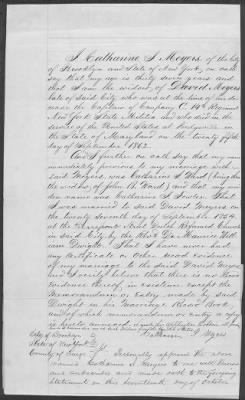 I Catharine S. Meyers of the City
of Brooklyn and State of New York, on oath
say that my age is thirty seven years and
that I am the widow of David Meyers
late of said City, who was at the time of his de-
cease the Captain of Company C, 14th Regiment
New York State Militia and who died in the
service of the United States at
State of Maryland on the twenty fifth
day of September 1862.
And I further on oath say that my name
immediately previous to my marriage with
said Meyers, was Catharine S. Ward (being then
the widow of John B. Ward) and that my mai-
den name was Catharine S. Fowler. That
I was married to said David Meyers on
the twenty seventh day of September 1854.
at the Pierrepont Street Dutch Reformed Church
in said City by the Rev. Dr. Maurice Wil-
liam Dwight. That I have never had
any Certificate or other record evidence
of my marriage to the said David Meyers
and I verily believe that there is no other
evidence thereof, in existence except the
Memorandum or Entry made by said
Dwight in his Marriage Record Book,
and of which memorandum or entry a copy
is hereto annexed
Catharine S. Meyers
City of Brooklyn
State of New York
County of Kings ss. Personally appeared the above
named Catharine S. Meyers to me well known
and subscribed and made oath to the foregoing
statement on this seventeenth day of October